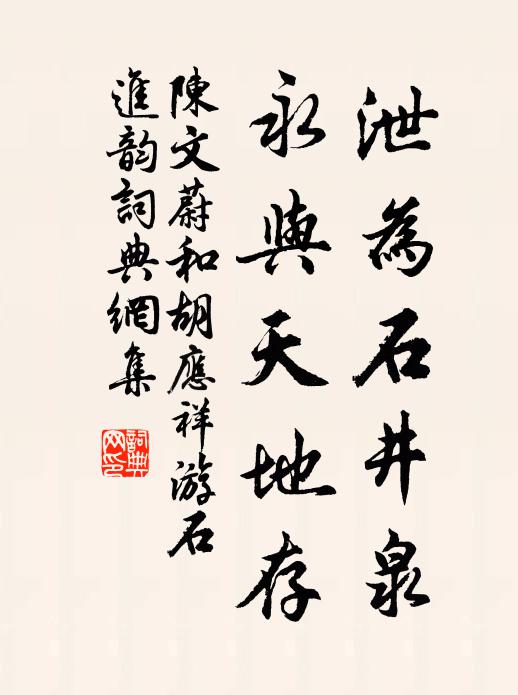 泄為石井泉
永與天地存
陳文蔚和胡應祥游石
進韵詞典網集
詞典网印